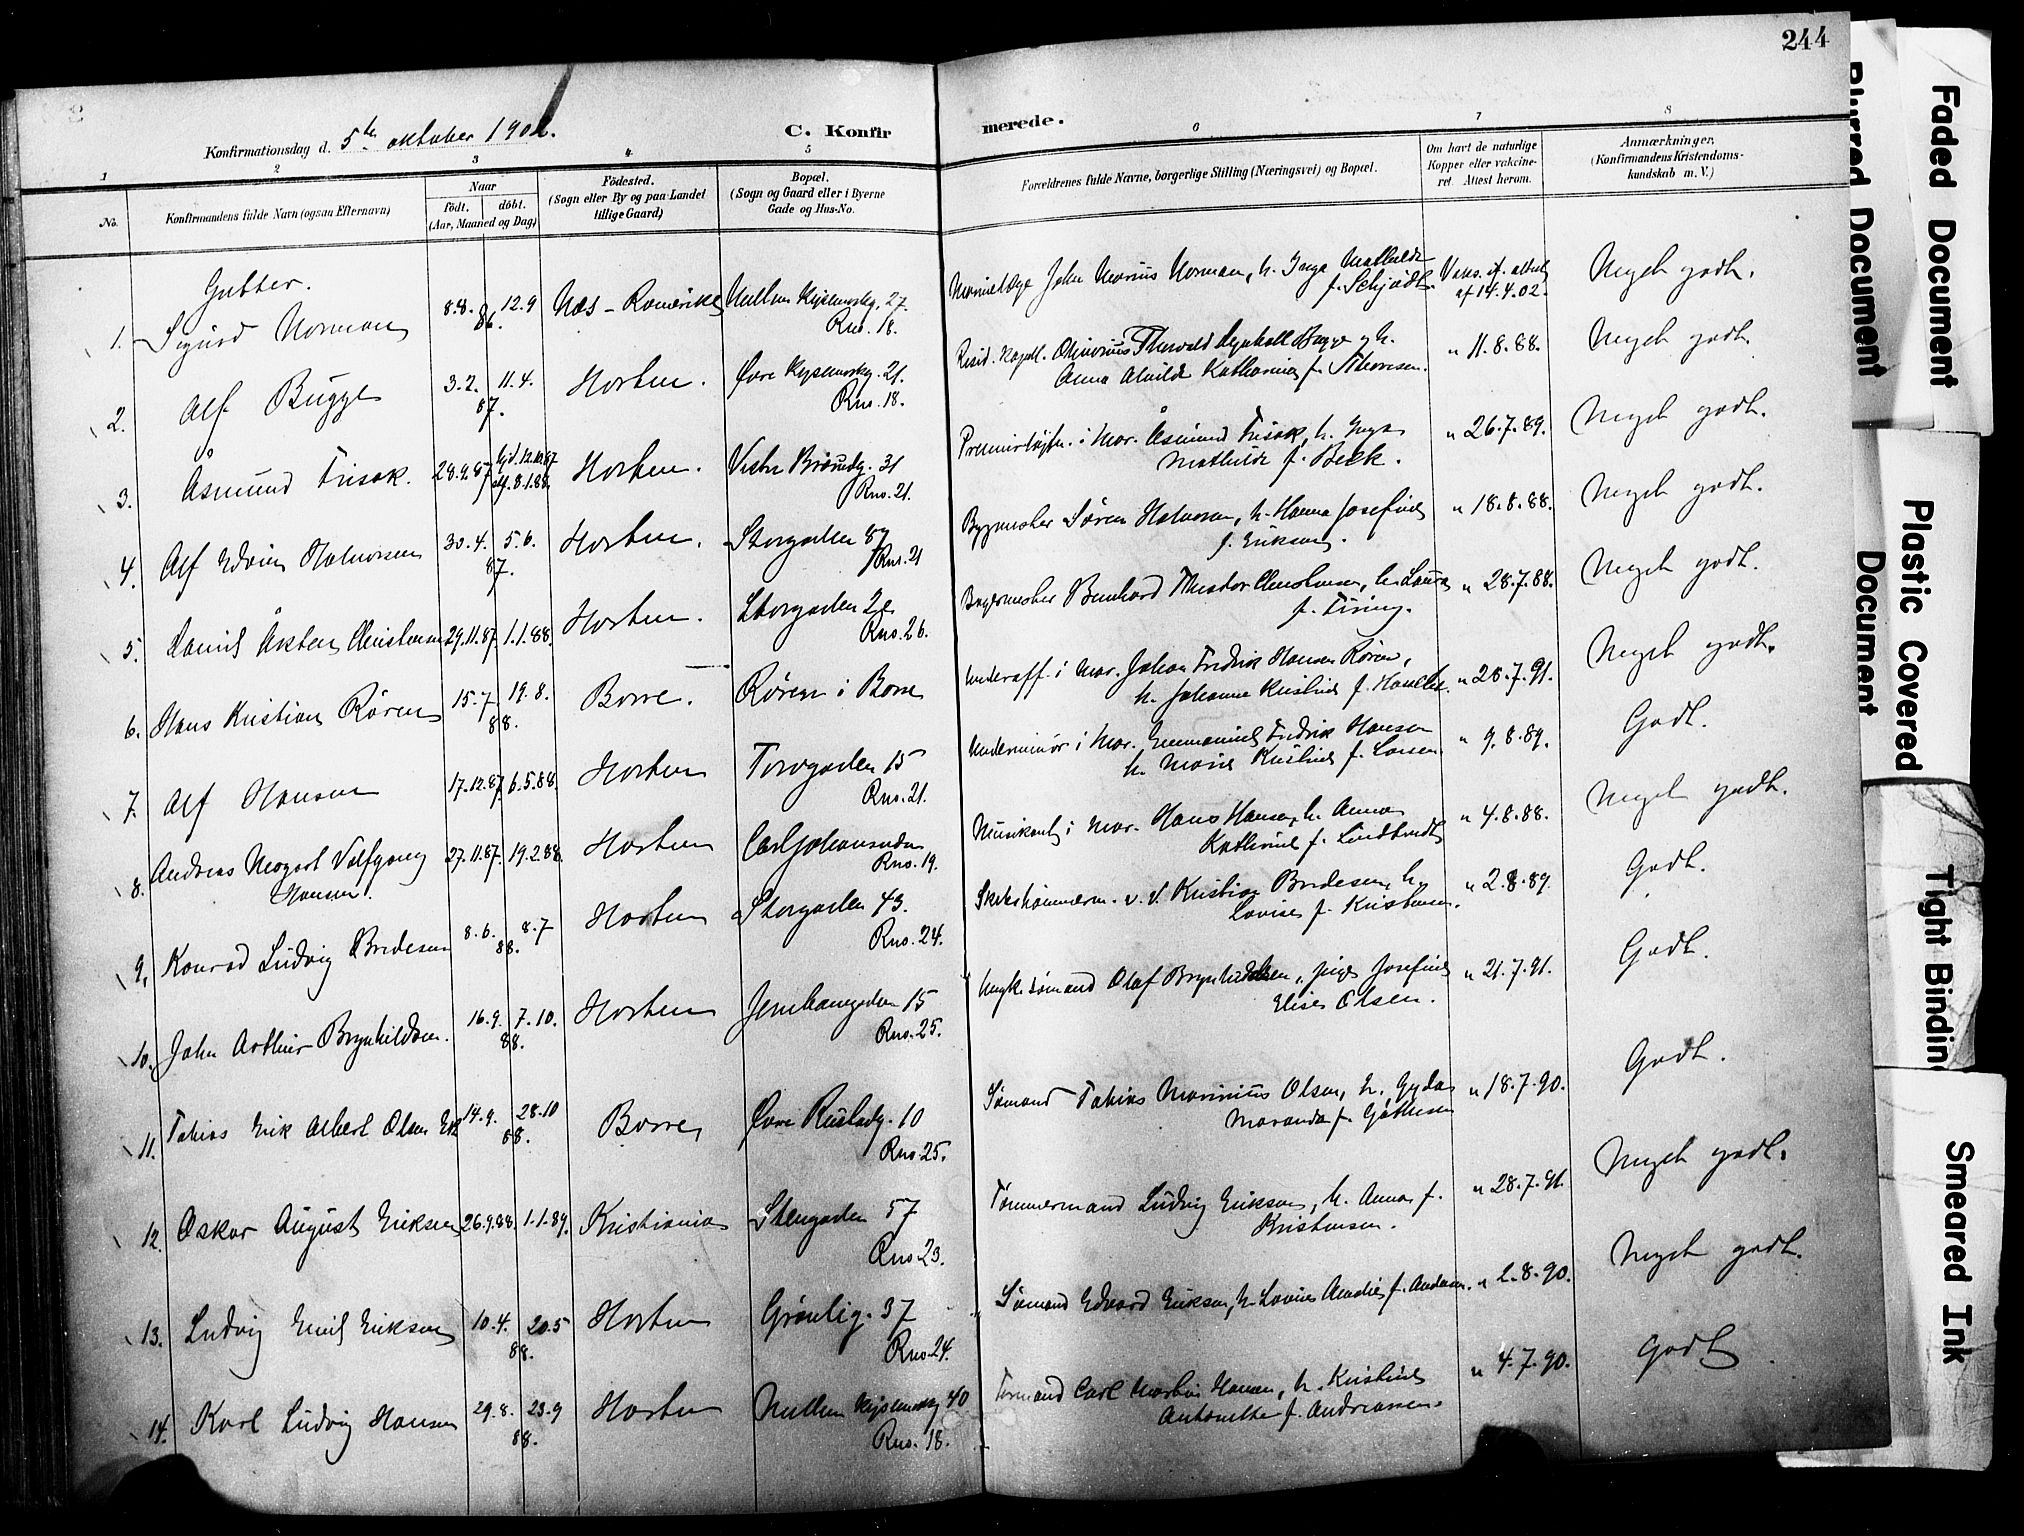 244
Konfirmationsdag d. 5te oktober 1902.
C. Konfirmerede.
1 2 3 4 5 6 7 8
No.
Konfirmandens fulde Navn (ogsaa Efternavn)
Naar
født. døbt.
(Aar, Maaned og Dag)
Fødested.
(Sogn eller By og paa Landet
tillige Gaard)
Bopæl.
(Sogn og Gaard eller i Byerne
Gade og Hus-No.
Forældrenes fulde Navne, borgerlige Stilling (Næringsvei) og Bopæl.
Om havt de naturlige
Kopper eller vakcine-
ret. Attest herom.
Anmærkninger.
(Konfirmandens Kristendoms-
kundskab m. V.)
Gutter.
1. Sigurd Norman 8.8. 12.9 86. Næs - Romerike 27. Rno. 18.
John Marius Norman, h. Inga Mathilde f. Schjødt. Vaks. if. attest af 14.4.02. Meget godt.
2. Alf Bugge 3.2. 11.4. 87. Horten. Øvre 21. Rno. 18.
Resid. kapell. Thorvald Bugge h. Anna Alvilde Katharina f. " 11.8.88. Meget godt.
3. Åsmund Frisak. 28.9.87 8.1.88. Horten. Vestre 31 Rno. 21.
i Mar. Åsmund Frisak, h. Inga Mathilde f. Beck. " 26.7.89. Meget godt.
4. Alf Edvin Halvorsen 30.4. 5.6. 87. Horten. Storgaden 87 Rno. 21
Søren Halvorsen, h. Hanna Josefine f. Eriksen. " 18.8.88. Meget godt.
5. Christensen 29.11.87. 1.1.88. Horten. Storgaden Rno. 26.
Bernhard Theodor Christensen, h. Laura f. " 28.7.88. Meget godt.
6. Hans Kristian Røren 15.7. 19.8. 88. Borre. Røren i Borre
Underoff. i Mar. Johan Fredrik Hansen Røren, h. Johanne Kristine f. " 28.7.91. Meget godt.
7. Alf Hansen 17.12.87. 6.5.88. Horten Torvgaden 15 Rno. 21.
Underminør i Mar. Emmanuel Fredrik Hansen h. Marie Kristine f. Larsen " 9.8.89. Godt.
8. Andreas Mozart Volfgang Hansen. 27.11.87. 19.2.88. Horten Rno. 19.
Musikant i Mar. Hans Hansen, h. Anna Kathrine f. " 4.8.88. Meget godt.
9. Konrad Ludvig Bredesen 8.6. 8.7 88. Horten Storgaden 43. Rno. 24.
v. V. Kristian Bredesen, h. Lovise f. Kristensen. " 2.8.89. Godt.
10. John Arthur Brynhildsen. 16.9. 7.10. 88. Horten Jernbanegaden 15 Rno. 25.
Ungk. sømand Olaf Brynhildsen, pige Josefine Elise Olsen. " 21.7.91. Godt.
11. Tobias Erik Albert Olsen 14.9. 28.10 88. Borre Øvre 10 Rno. 25.
Sømand Tobias Marinius Olsen, h. Gyda f. " 18.7.90. Godt.
12. Oskar August Eriksen 26.9.88. 1.1.89. Kristiania Stengaden 57 Rno. 23.
Tømmermand Ludvig Eriksen, h. Anna f. Kristensen. " 28.7.91. Meget godt.
13. Ludvig Emil Eriksen 10.4. 20.5 88. Horten Grønlig. 37 Rno. 24.
Sømand Edvard Eriksen, h. Lovise Amalie f. Andersen. " 2.8.90. Meget godt.
14. Karl Ludvig Hansen 29.8. 23.9 88. Horten 40 Rno. 18.
Carl Martin Hansen, h. Kristine Antonette f. Andreassen. " 4.7.90. Godt
Faded Document
Blurred Document
Plastic Covered
Document
Tight Bindin
Smeared Ink